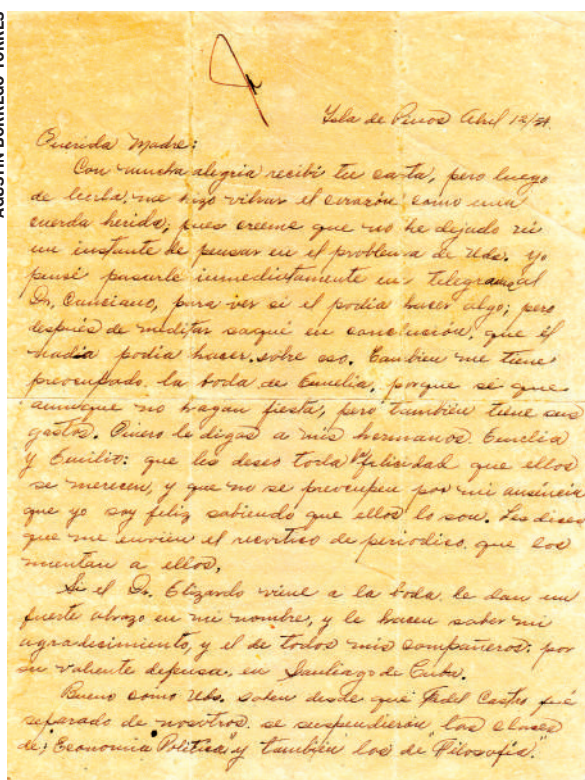 AGUSTÍN BORREGO TORRES
Isla de Pinos Abril 12/54.
Querida Madre:
Con mucha alegria recibí tu carta, pero luego
de leerla, me hizo vibrar el corazón como una
cuerda herida; pues creeme que no he dejado ni
un instante de pensar en el problema de Uds. yo
pensé pasarle inmediatamente un telegrama al
Dr. Canciano, para ver si el podia hacer algo; pero
después de meditar saqué en conclusión, que él
nadia podia hacer sobre eso. Tambien me tiene
preocupado la boda de Emelia, porque sé que
aumque no hagan fiesta, pero también tiene sus
gastos. Quiero le digas a mis hermanos Emelia
y Emilio: que les deseo toda la felisidad que ellos
se merecen, y que no se preocupen por mi auséncia
que yo soy feliz sabiendo que ellos lo son. Les dices
que me envien el recortico de periodico que los
mentan a ellos,
Si el Dr. Elizardo viene a la boda le dan un
fuerte abrazo en mi nombre, y le hacen saber mi
agradecimiento, y el de todos mis compañeros por
su valiente defensa, en Santiago de Cuba.
Bueno cómo Uds. saben desde que Fidel Castro fué
separado de nosotros se suspendierón "las clases
de; Economia Politica" y también las de Filosofía."